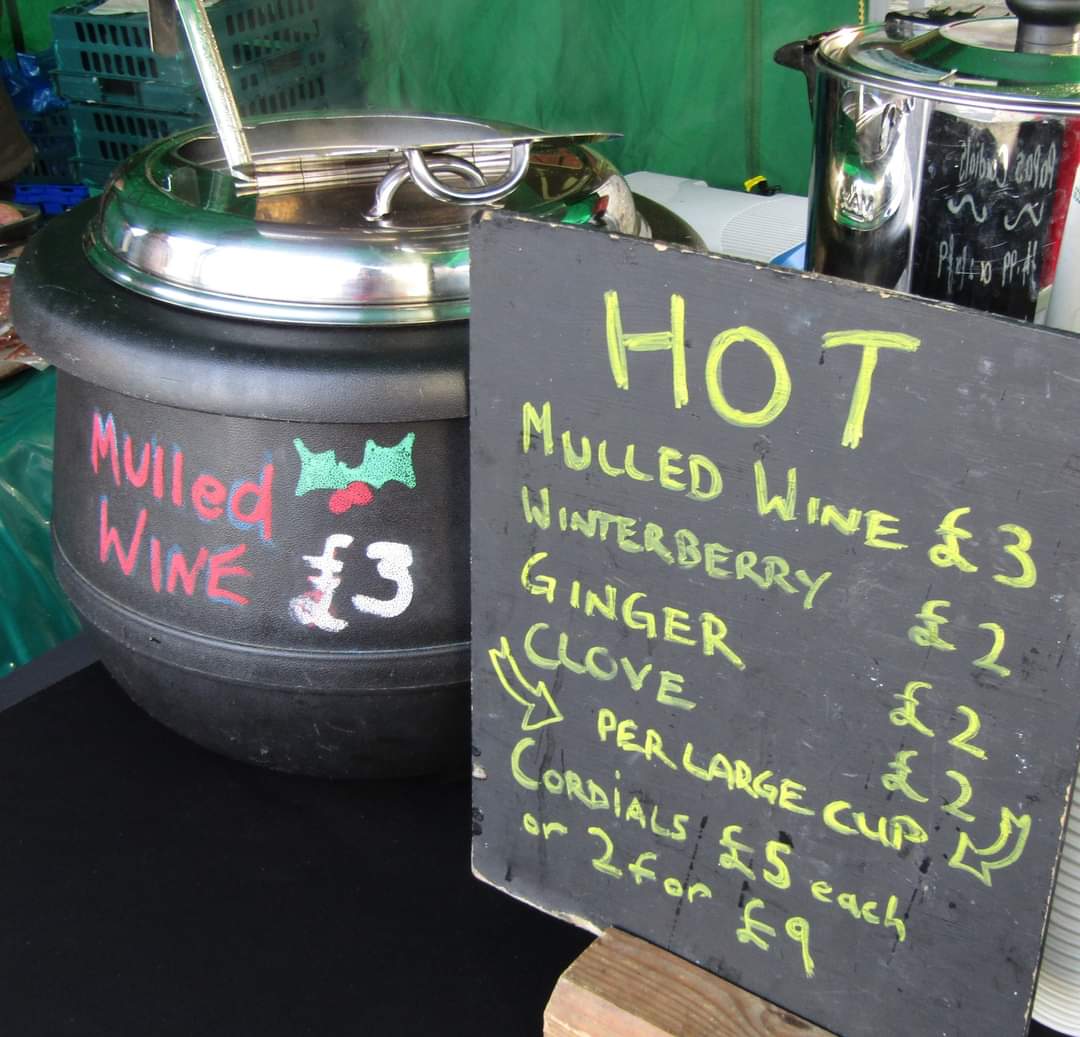 Mulled
WINE
£3
HOT
MULLED WINE £3
WINTERBERRY £2
GINGER £2
CLOVE £2
PER LARGE CUP
CORDiALS £5 each
or 2 for £9